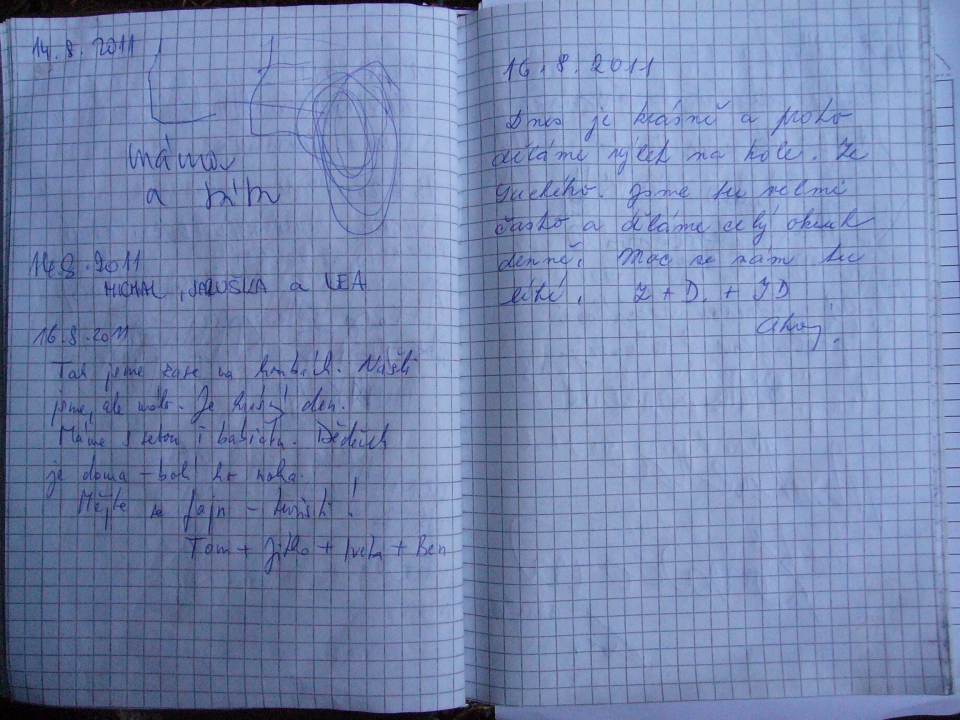 14.8.2011
máma
a
14.8.2011
MICHAL, JARUŠKA a LEA
16.8.2011
Tak jsme zase na houbách. Našli
jsme, ale málo. Je krásný den!
Máme s sebou i babičku. Dědeček
je doma – bolí ho noha.
Mějte se fajn – turisti!
Tom + Jitka + Iveta + Ben
16.8.2011
Dnes je krásně a proto
děláme výlet na kole. Ze
Jsme tu velmi
často a děláme celý okruh
denně. Moc se nám tu
líbí. Z + D. + JD
Ahoj.